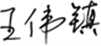 王伟镇